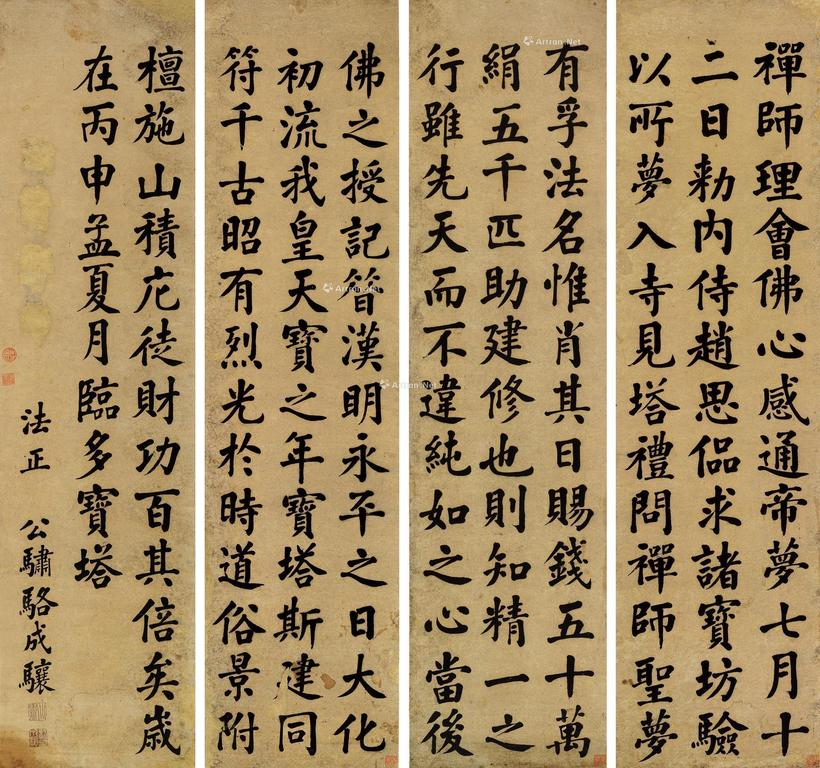 禪師理會佛心感通帝夢七月十
二日勑内侍趙思偘求諸寶坊驗
以所夢入寺見塔禮問禪師聖夢
有孚法名惟肖其日賜錢五十萬
絹五千匹助建修也則知精一之
行雖先天而不違純如之心當後
佛之授記昔漢明永平之日大化
初流我皇天寶之年寶塔斯建同
符千古昭有烈光於時道俗景附
檀施山積庀徒財功百其倍矣歲
在丙申孟夏月臨多寶塔
法正 公驌駱成驤
Artron.Net
Artron.Net
Artron.Net